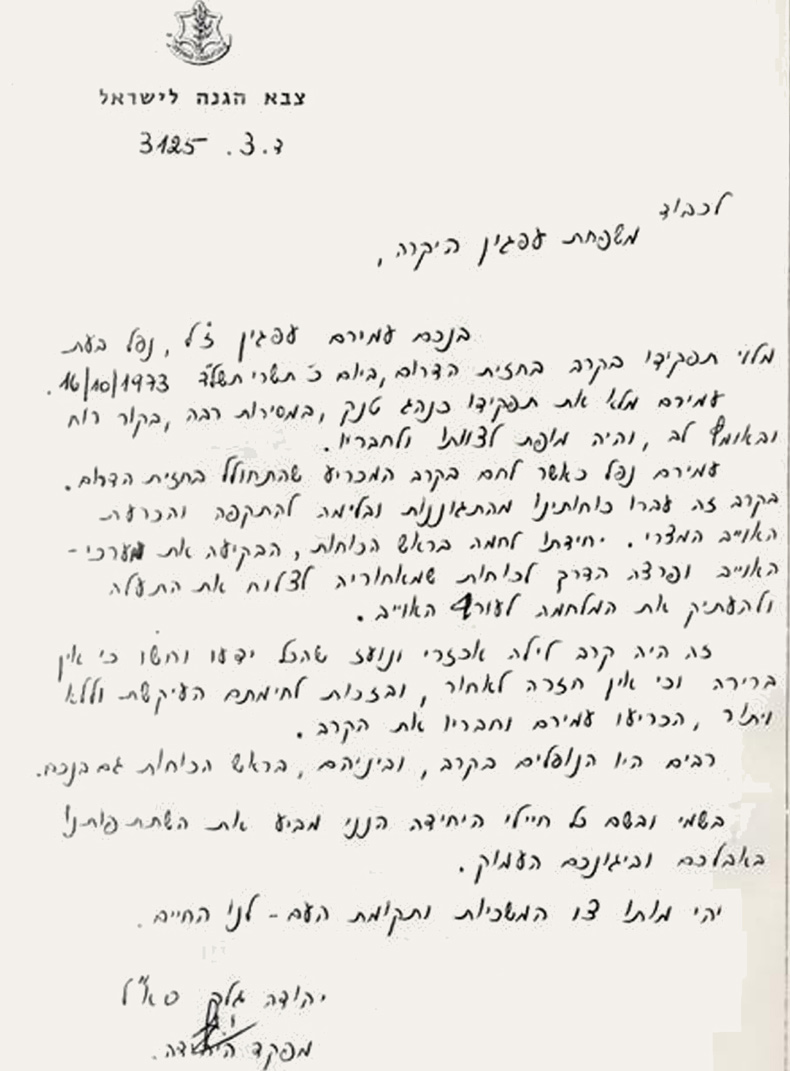 צבא הגנה לישראל
ד.3. 3125
לכבוד
משפחת עפגין היקרה,
בנכם עמירם עפגין ז"ל, נפל בעת
מלוי תפקידו בקרב בחזית הדרום, ביום כ' תשרי תשל"ד 16/10/1973.
עמירם מלא את תפקידו כנהג טנק, במסירות רבה, בקור רוח
ובאומץ לב, והיה מופת לצוותו ולחבריו.
עמירם נפל כאשר לחם בקרב המכריע שהתחולל בחזית הדרום.
בקרב זה עברו כוחותינו מהתגוננות ובלימה להתקפה והכרעת
האוייב המצרי. יחידתו לחמה בראש הכוחות, הבקיעה את מערכי-
האוייב ופרצה הדרך לכוחות שמאחוריה לצלוח את התעלה
ולהעתיק את המלחמה לעורף האוייב.
זה היה קרב לילה אכזרי ונועז שהכל ידעו וחשו כי אין
ברירה וכי אין חזרה לאחור, ובזכות לחימתם העיקשת וללא
ויתור, הכריעו עמירם וחבריו את הקרב.
רבים היו הנופלים בקרב, וביניהם, בראש הכוחות גם בנכם.
בשמי ובשם כל חיילי היחידה הנני מביע את השתתפותנו
באבלכם וביגונכם העמוק.
יהי מותו צו המשכיות ותקומת העם - לנו החיים.
יהודה גלר סא"ל
מפקד היחידה.